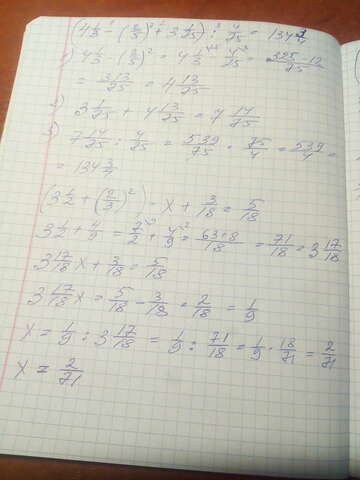 (4 1/3 - (2/5)² + 3 1/75) : 4/75 = 134 3/4
1) 4 1/3 - (2/5)² = 4 1/3 - 4/25 = 325-12/75
= 313/75 = 4 13/75
2) 3 1/75 + 4 13/75 = 7 14/75
3) 7 14/75 : 4/75 = 539/75 · 75/4 = 539/4 =
= 134 3/4
(3 1/2 + (2/3)²) · x + 3/18 = 5/18
3 1/2 + 4/9 = 7/2 + 4/9 = 63+8/18 = 71/18 = 3 17/18
3 17/18 x + 3/18 = 5/18
3 17/18 x = 5/18 - 3/18 = 2/18 = 1/9
x = 1/9 : 3 17/18 = 1/9 : 71/18 = 1/9 · 18/71 = 2/71
x = 2/71